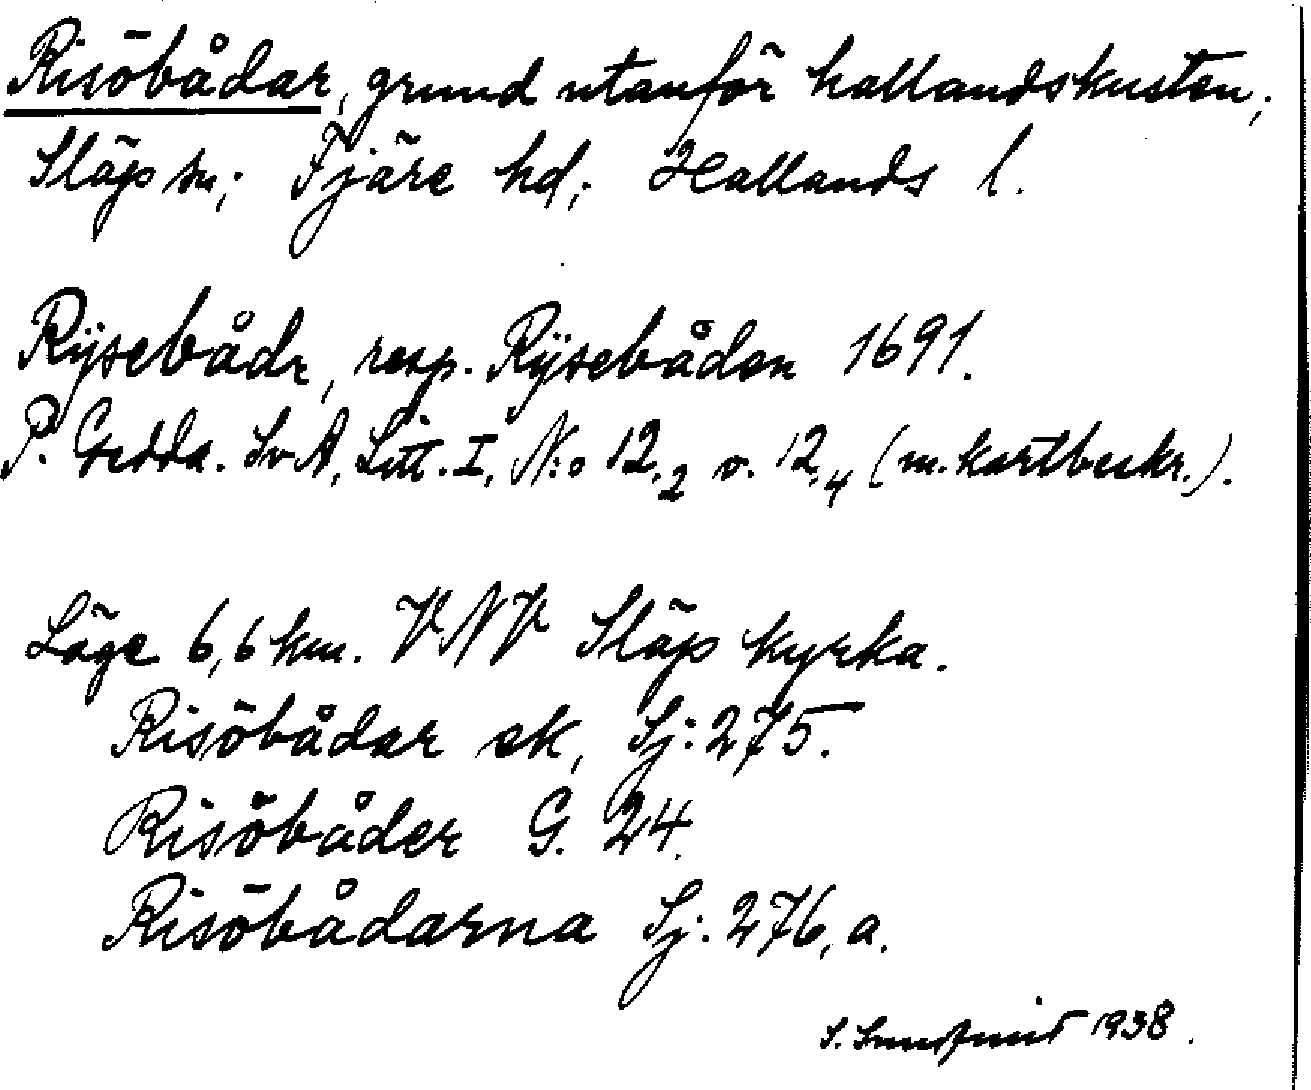 Risöbådar, grund utanför hallandskusten;
Släp sn; Fjäre hd; Hallands l.
Rÿsebådr, resp. Rÿsebåden 1691.
P. Gedda. Sv A, Litt. I, N:o 12.2 o. 12.4 (m. kartbeskr.).
Läge 6,6 km. VNV Släp kyrka.
Risöbådar ek, Sj: 275.
Risöbåder G. 24.
Risöbådarna Sj: 276, a.
S. 1938.